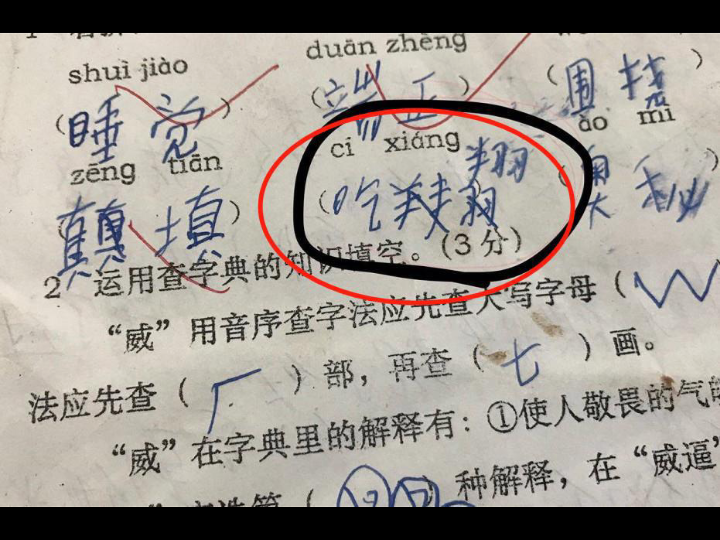 shuì jiào duān zhèng
(睡觉) (端正) (
zēng tiān cí xiáng ào mì
填) ( 翔) (奥秘
2 运用查字典的知识填空。(3分)
“威”用音序查字法应先查大写字母(W
法应先查(厂)部,再查(七)画。
“威”在字典里的解释有:①使人敬畏的气
)种解释,在“威逼”